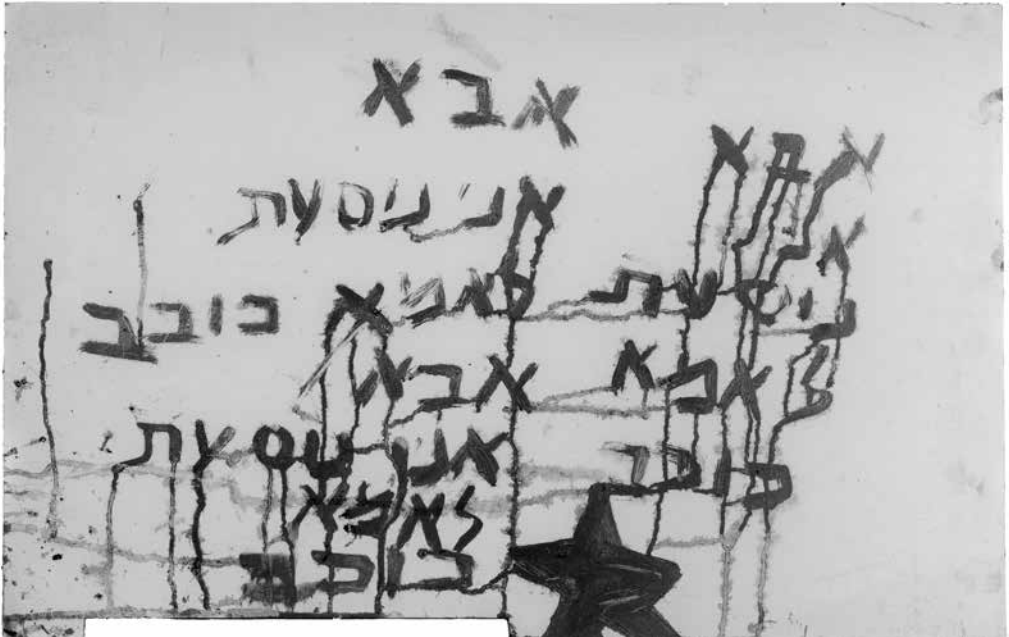 אבא
אני נוסעת
לאמא כוכב
אבא
אני נוסעת
לאמא
כוכב
אבא
נוסעת
לאמא